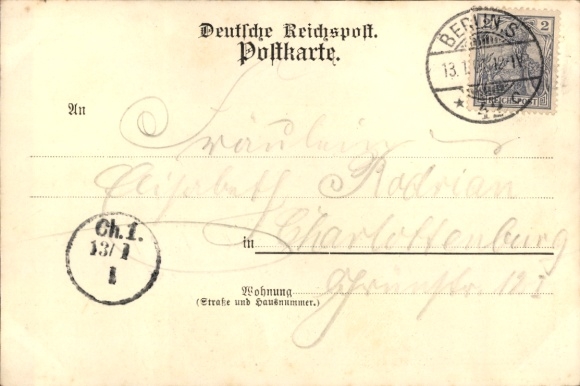 Deutsche Reichspost.
Postkarte.
BERLIN.S
2
13.1. 12-1V.
REICHSPOST
* 42
An
Fräulein
Elisabeth Rodrian
Ch.1.
13/1
1
in Charlottenburg
Wohnung
(Straße und Hausnummer.)